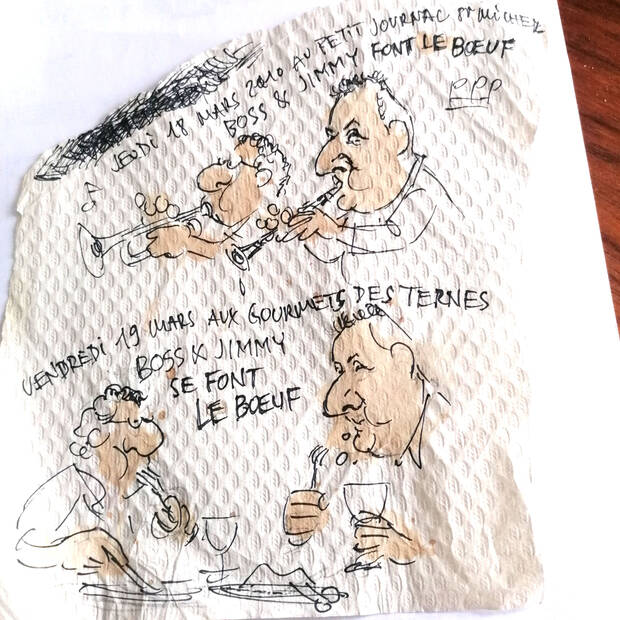 JEUDI 18 MARS 2010 AU PETIT JOURNAL ST MICHEL
BOSS & JIMMY FONT LE BŒUF
VENDREDI 19 MARS AUX GOURMETS DES TERNES
BOSS & JIMMY
SE FONT
LE BŒUF